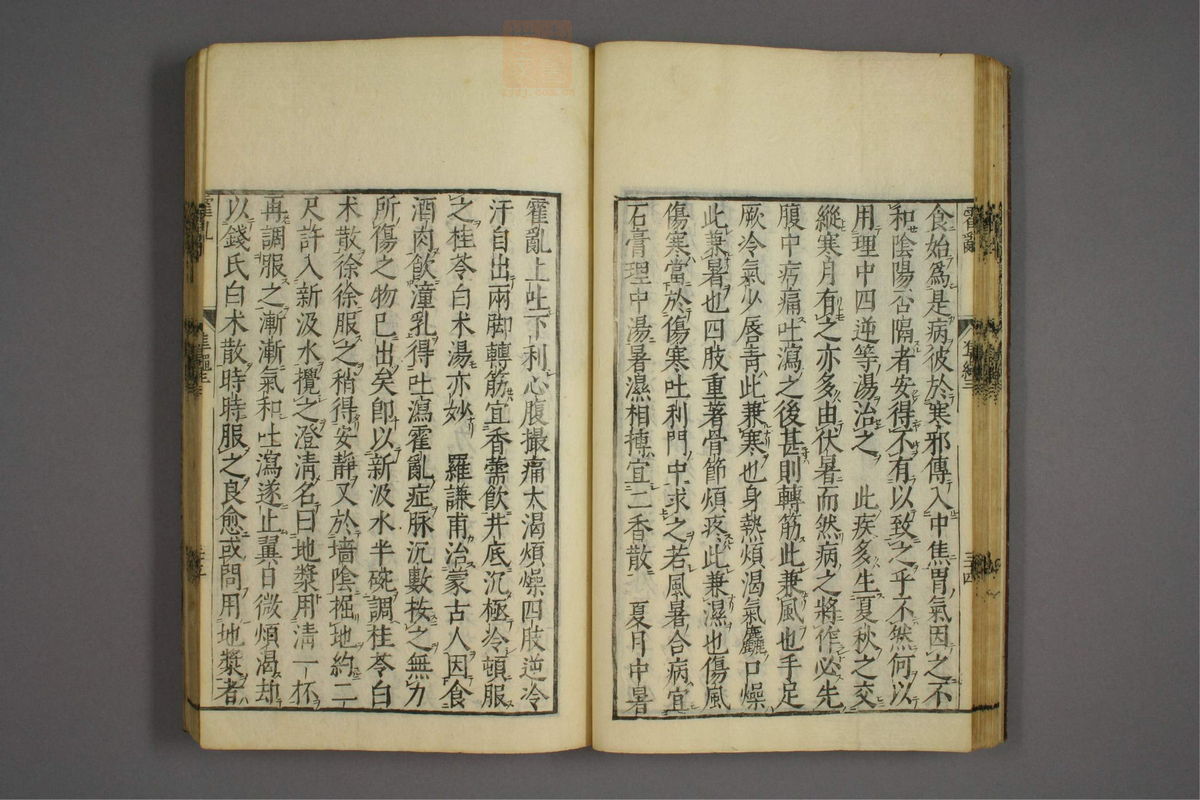 食始爲是病彼於寒邪傳入中焦胃氣因之不
和陰陽否隔者安得不有以致之乎不然何以
用理中四逆等湯治之　此疾多生夏秋之交
縱寒月有之亦多由伏暑而然病之將作必先
腹中㽲痛吐瀉之後甚則轉筋此兼風也手足
厥冷氣少唇青此兼寒也身熱煩渴氣麤口燥
此兼暑也四肢重著骨節煩疼此兼濕也傷風
傷寒當於傷寒吐利門中求之若風暑合病宜
石膏理中湯暑濕相搏宜二香散　夏月中暑
霍亂上吐下利心腹撮痛大渴煩燥四肢逆冷
汗自出兩脚轉筋宜香薷飲井底沉極冷頓服
之桂苓白术湯亦妙　羅謙甫治蒙古人因食
酒肉飲潼乳得吐瀉霍亂症脉沉數按之無力
所傷之物已出矣卽以新汲水半碗調桂苓白
术散徐徐服之稍得安靜又於墻陰掘地約二
尺許入新汲水攪之澄清名曰地漿用清一杯
再調服之漸漸氣和吐瀉遂止翼日微煩渴却
以錢氏白术散時時服之良愈或問用地漿者
霍亂